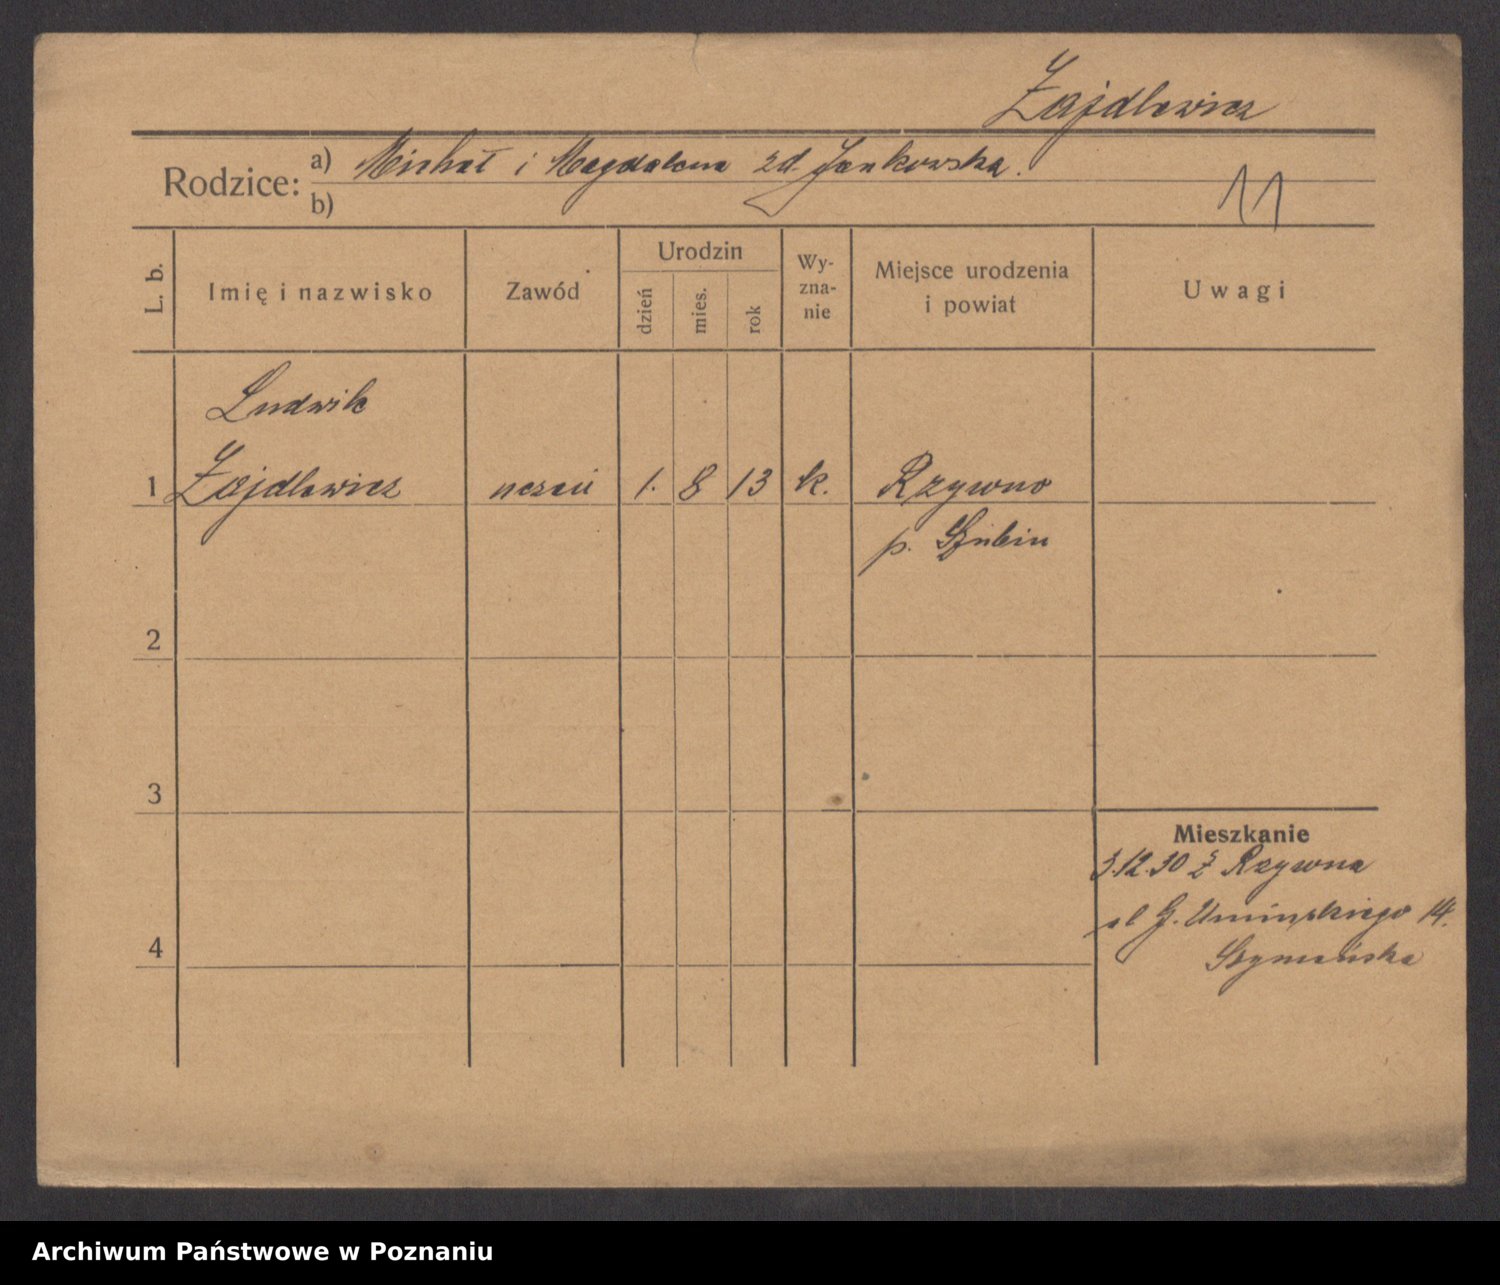 Zajdlewicz
Rodzice: a) Michał i Magdalena zd. Jankowska.
b)
11
L. b.
Imię i nazwisko
Zawód
Urodzin
dzień
mies.
rok
Wy-
zna-
nie
Miejsce urodzenia
i powiat
Uwagi
Ludwik
1 Zajdlewicz uczeń 1. 8 13 k. Rzywno
p. Szubin
2
3
Mieszkanie
3.12.30 z Rzywna
ul G. Umińskiego 14.
4
Szymańska
Archiwum Państwowe w Poznaniu